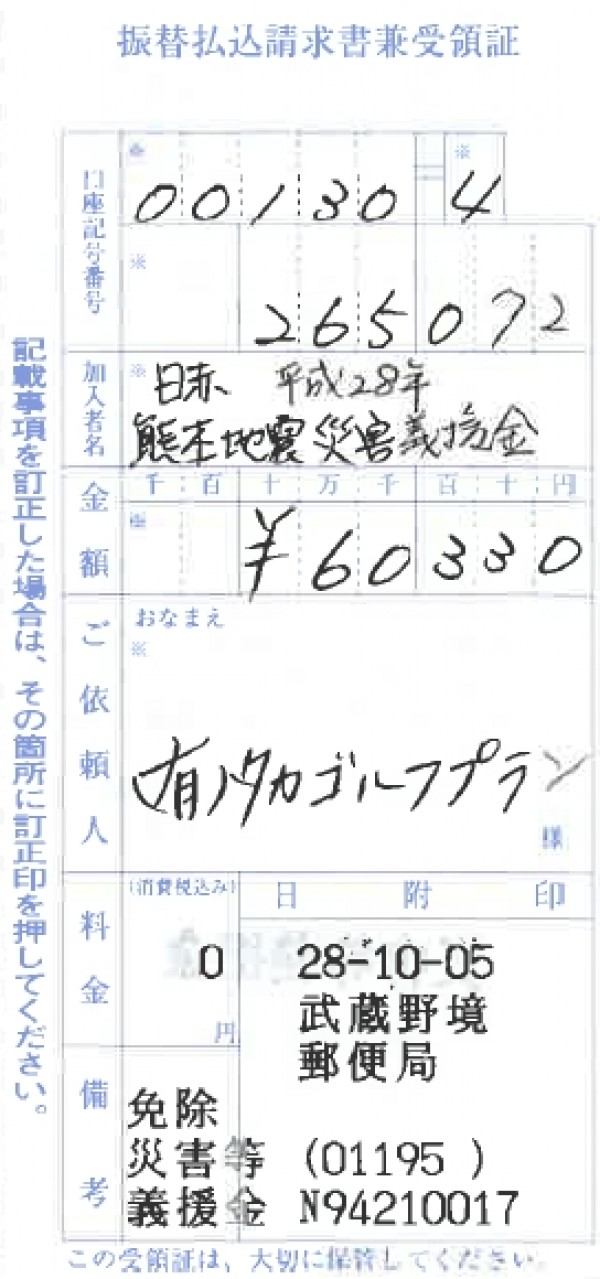 振替払込請求書兼受領証
口座記号番号
※
00130
※
4
※
265072
加入者名
※
日赤 平成28年
熊本地震災害義援金
金額
千百十万千百十円
※
¥60330
ご依頼人
おなまえ
※
(有)タカゴルフプラン
様
料金
(消費税込み)
0
円
日附印
28-10-05
武蔵野境
郵便局
備考
免除
災害等 (01195 )
義援金 N94210017
記載事項を訂正した場合は、その箇所に訂正印を押してください。
この受領証は、大切に保管してください。